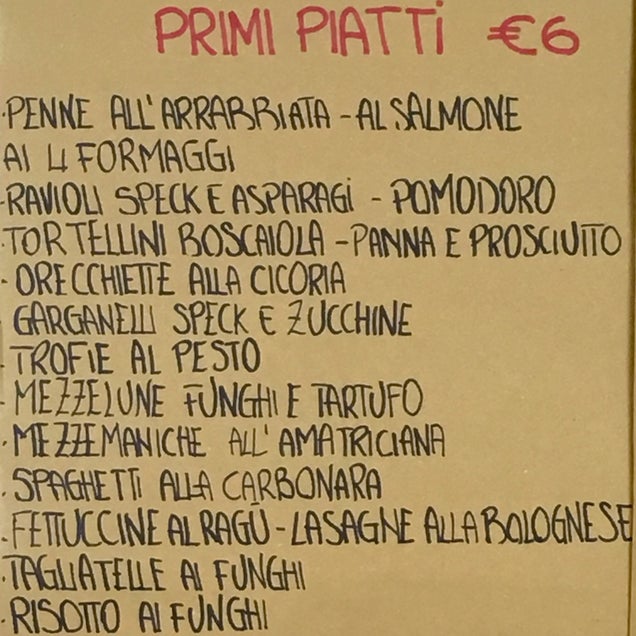 PRIMI PIATTI €6
·PENNE ALL'ARRABBIATA - AL SALMONE
AI 4 FORMAGGI
-RAVIOLI SPECK E ASPARAGI - POMODORO
·TORTELLINI BOSCAIOLA - PANNA E PROSCIUTTO
· ORECCHIETTE ALLA CICORIA
· GARGANELLI SPECK E ZUCCHINE
· TROFIE AL PESTO
- MEZZELUNE FUNGHI E TARTUFO
· MEZZEMANICHE ALL'AMATRICIANA
· SPAGHETTI ALLA CARBONARA
· FETTUCCINE AL RAGÙ - LASAGNE ALLA BOLOGNESE
· TAGLIATELLE AI FUNGHI
· RISOTTO AI FUNGHI